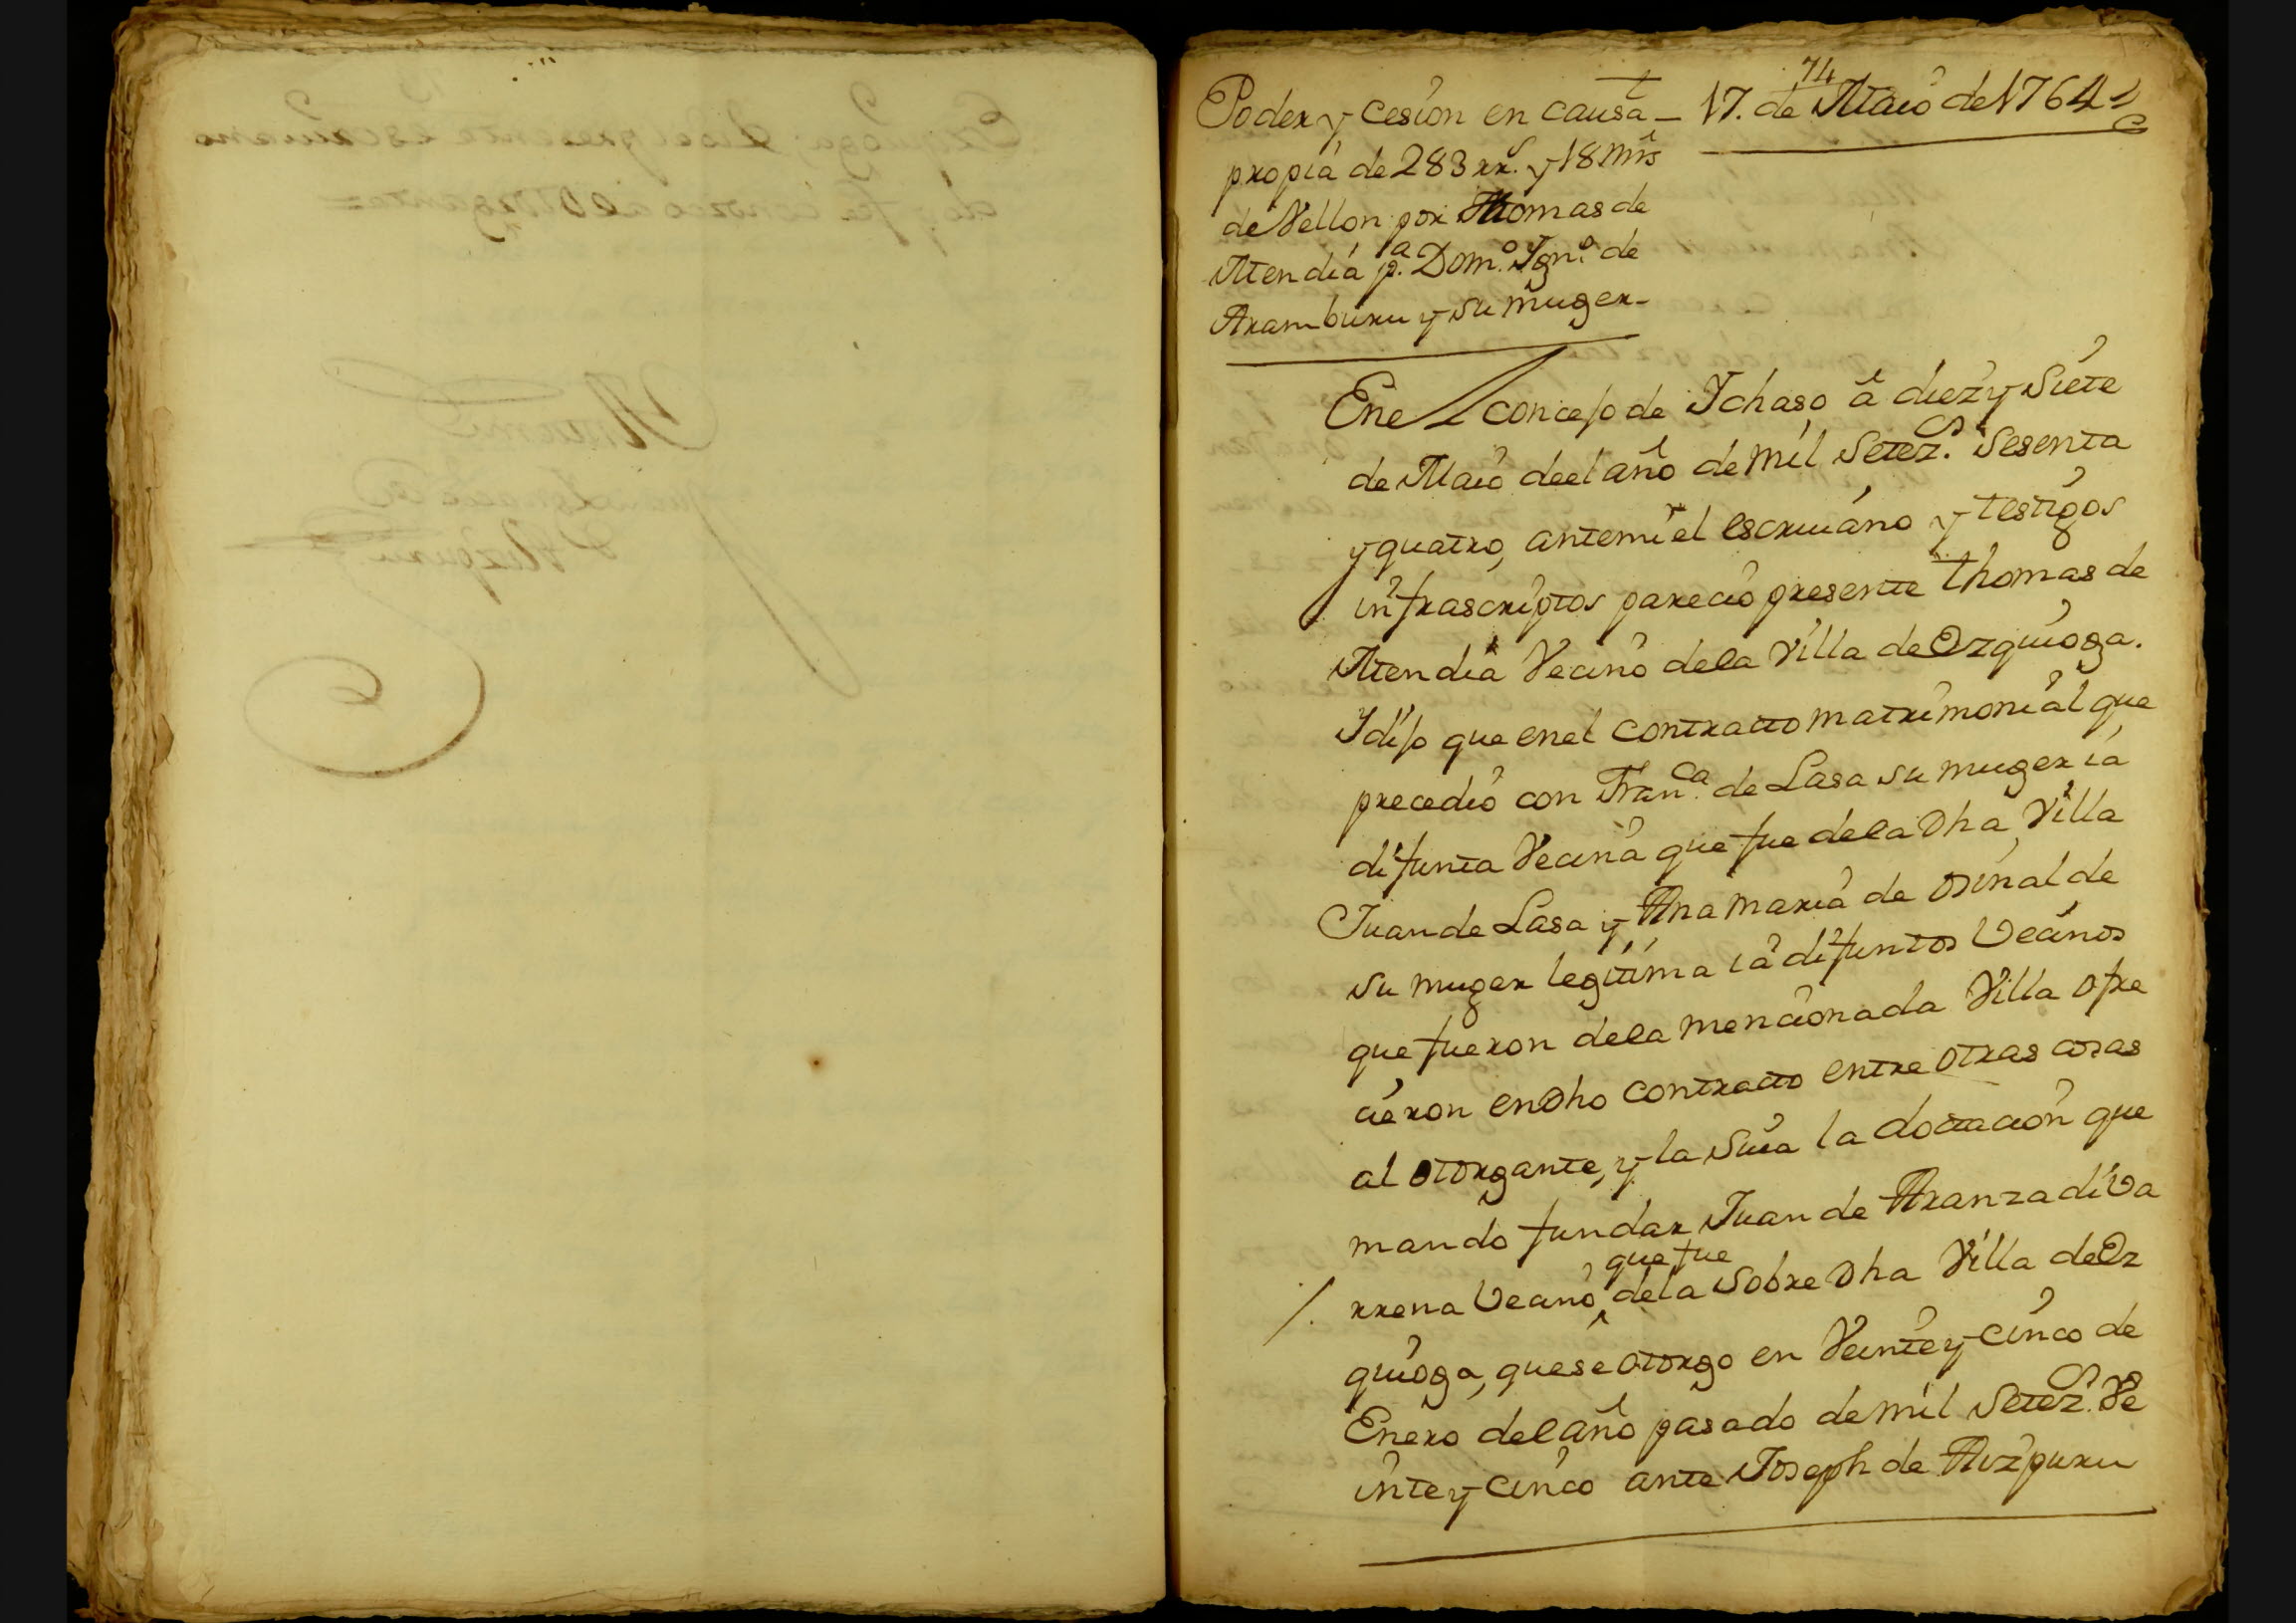 74
Poder y cesion en causa – 17. de Maio de 1764
propia de 283 rr.s y 18 mrs
de Vellon por Thomas de
Mendia p.a Dom.o Ygn.o de
Aramburu y su muger –
En el concejo de Ychaso â diez y Siete
de Maio de el año de mil Setez.s Sesenta
y quatro, antemi el escriuano y testigos
infrascriptos parecio presente thomas de
Mendia Vecino dela Villa de Ozquioga.
Y dijo que enel contratto matrimonial que
precedio con Fran.ca de Lasa su muger ia
difunta Vecina que fue dela Dha Villa
Juan de Lasa y Ana maria de Orinal de
su muger legitima ia difuntos Vecinos
que fueron dela mencionada Villa ofre
cieron en Dho contratto entre otras cosas
al otorgante, y la Suia la dottacion que
mando fundar Juan de Aranzadi Va
que fue
/. rrena Vecino dela Sobre Dha Villa de Oz
quioga, que se otorgo en Veinte y cinco de
Enero del año pasado de mil Setez.s Ve
inte y cinco ante Joseph de Aizpuru